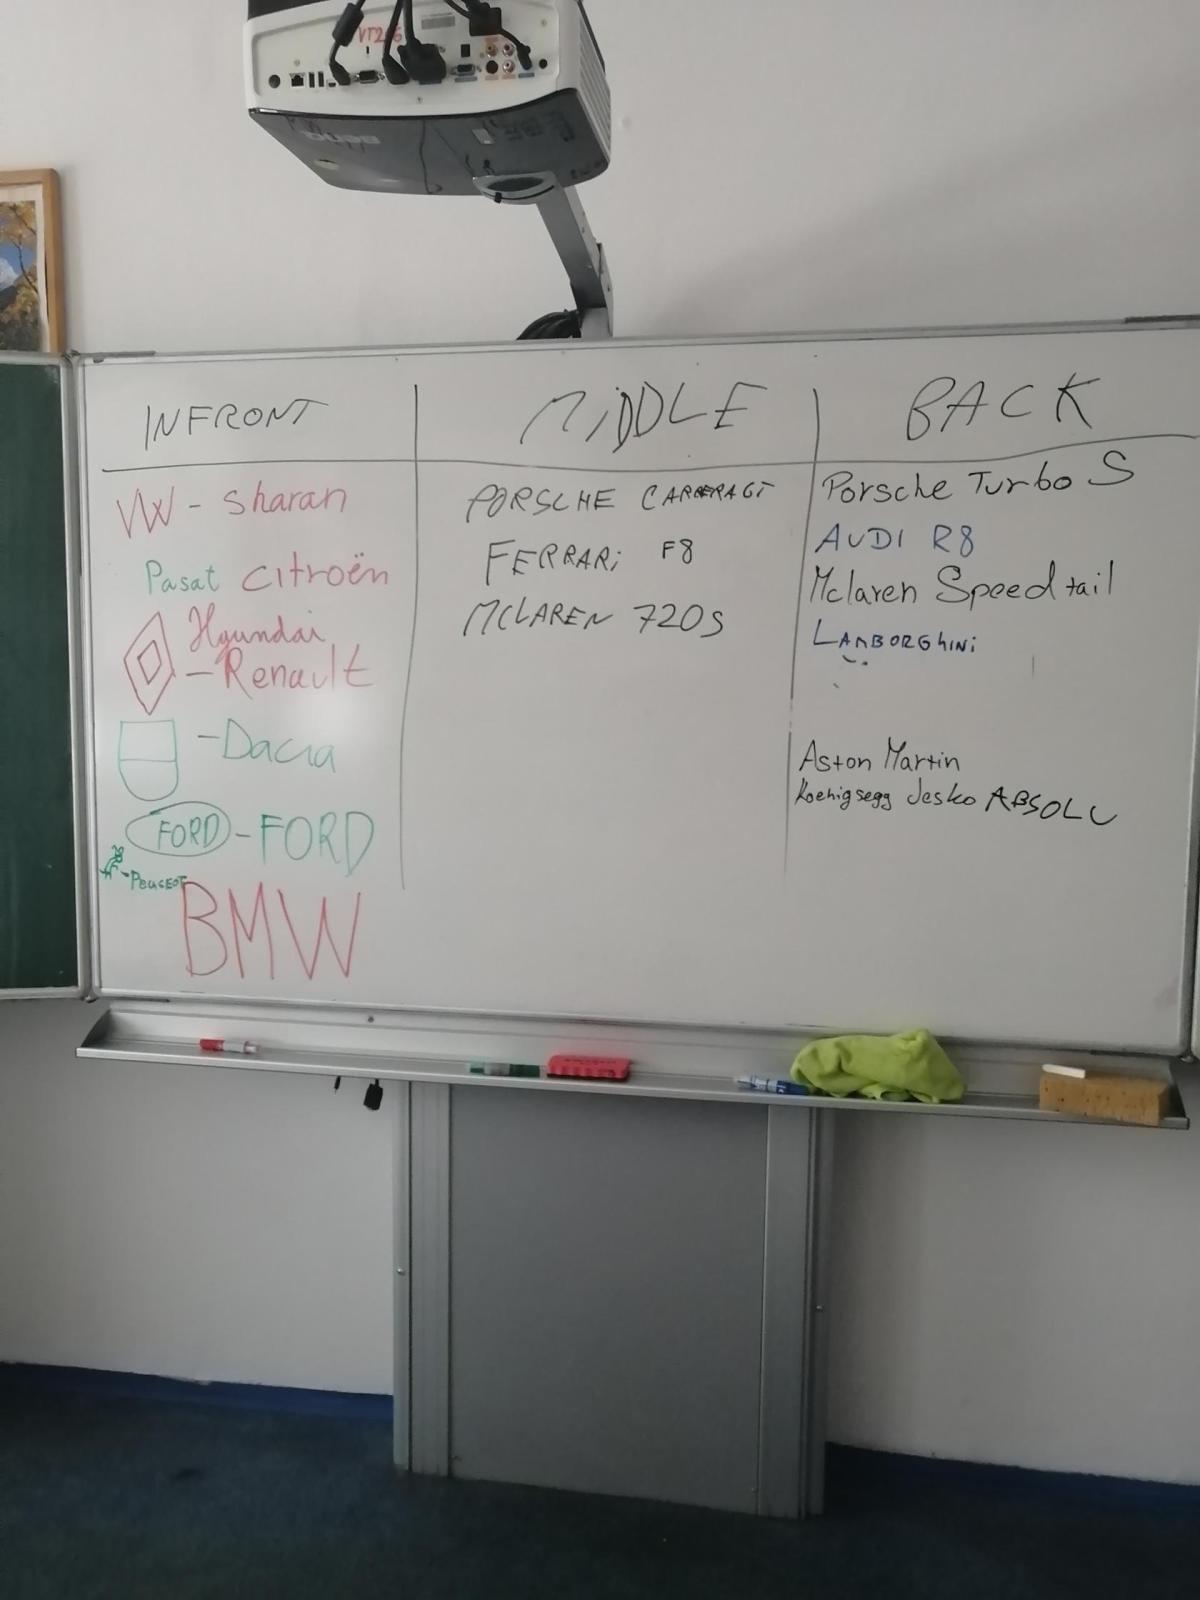 VT206
BenQ
INFRONT
MIDDLE
BACK
VW - Sharan
Pasat Citroën
Hyundai
- Renault
- Dacia
FORD - FORD
- PEUGEOT
BMW
PORSCHE CARERAGT
FERRARi F8
MCLAREN 720S
Porsche Turbo S
AUDI R8
Mclaren Speed tail
LAMBORGHiNi
Aston Martin
Koenigsegg Jesko ABSOLU